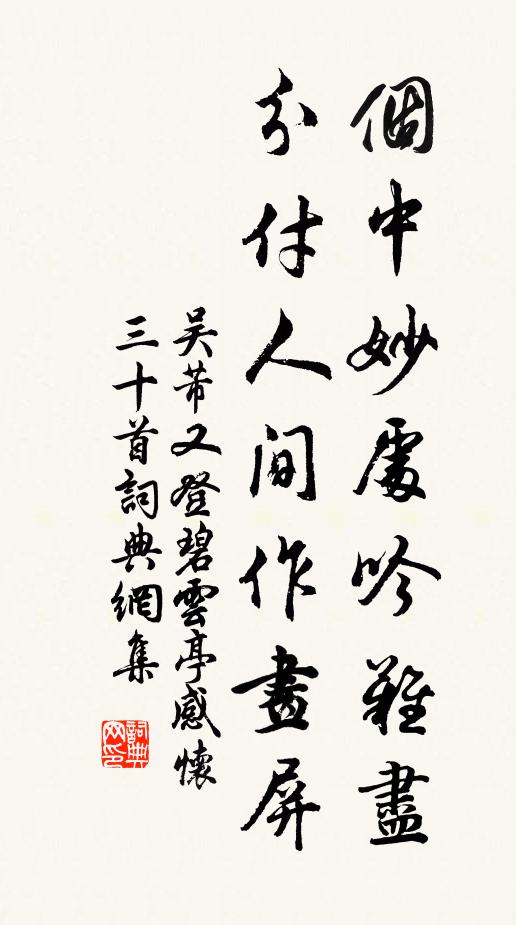 個中妙處吟難盡
分付人間作畫屏
吳芾又登碧雲亭感懷
三十首詞典網集
詞典網印